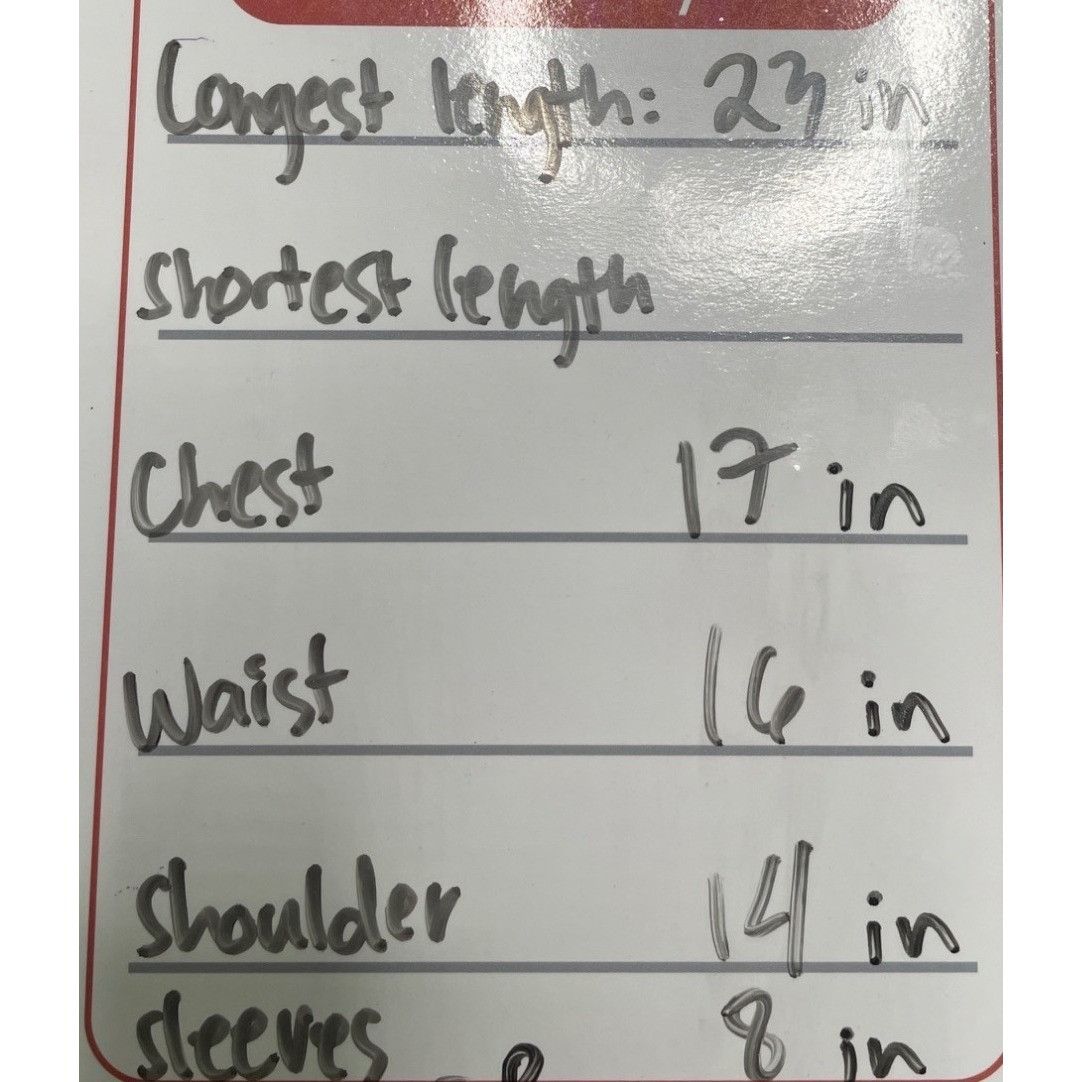 Longest length: 23 in
shortest length
Chest 17 in
Waist 16 in
shoulder 14 in
sleeves 8 in